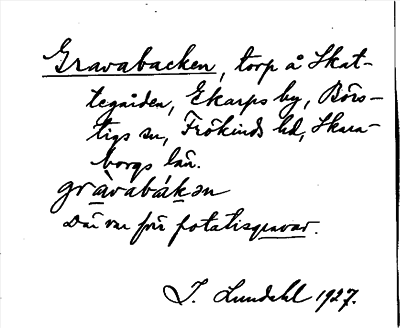 Gravabacken, torp å Skat-
tegården, Ekarps by, Börs-
tigs sn, Frökinds hd, Skara-
borgs län.
gràvabákən
Där var förr potatisgravar.
I. Lundahl 1927.